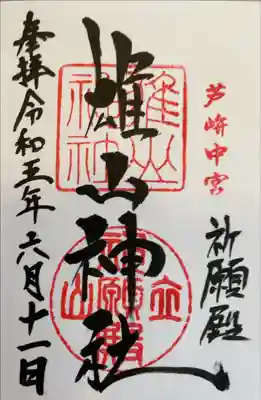 芦峅中宮
祈願殿
雄山神社
奉拝 令和五年六月十一日
雄山神社
立山祈願殿